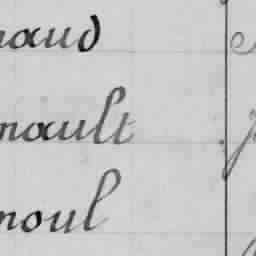 naud
nault
noul